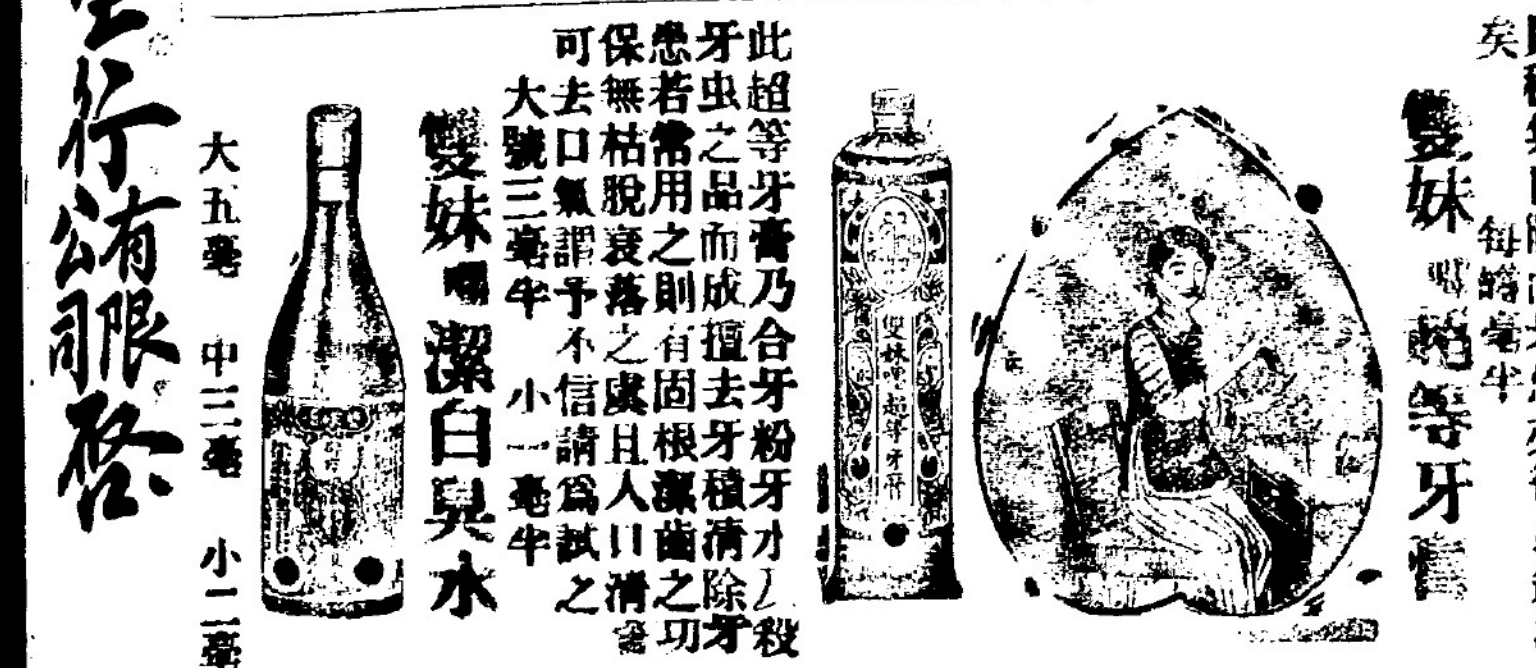 矣
每罇毫半
雙妹嚜超等牙膏
雙妹嚜超等牙膏
此超等牙膏乃合牙粉牙水及殺
牙虫之品而成擅去牙積清除牙
患若常用之則有固根潔齒之功
保無枯脫衰落之虞且人口清
可去口氣謂予不信請為試之
大號三毫半 小一毫半
雙妹嚜潔白臭水
大五毫 中三毫 小二毫
行有限公司啓